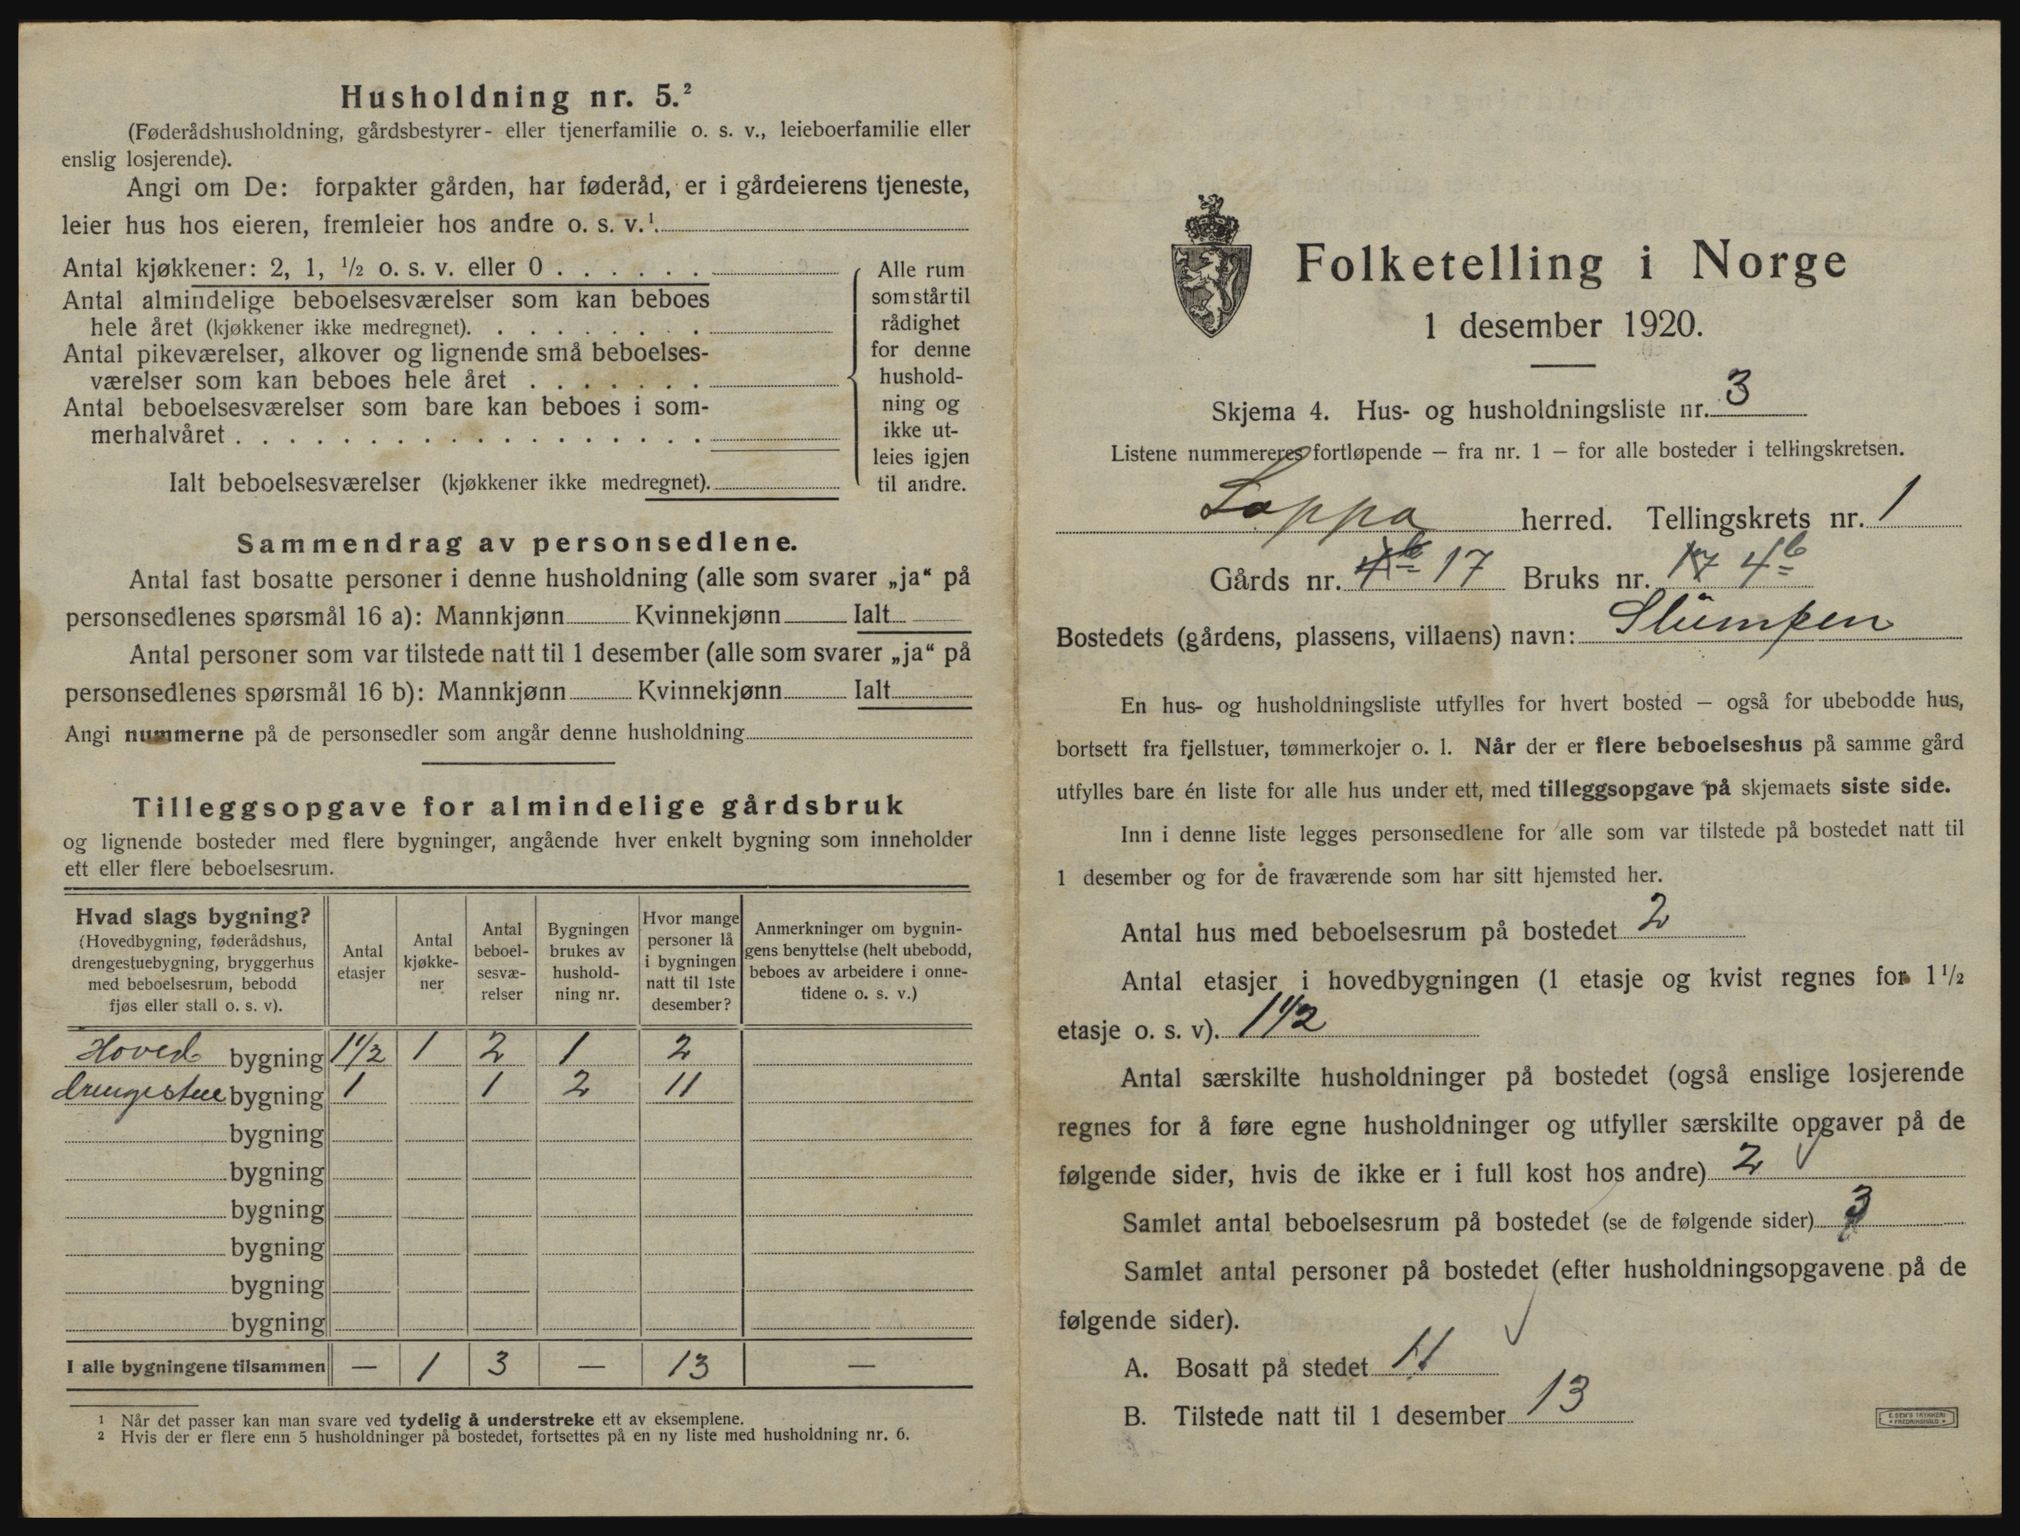 Husholdning nr. 5.²
(Føderådshusholdning, gårdsbestyrer- eller tjenerfamilie o. s. v., leieboerfamilie eller
enslig losjerende).
Angi om De: forpakter gården, har føderåd, er i gårdeierens tjeneste,
leier hus hos eieren, fremleier hos andre o. s. v.¹.
Antal kjøkkener: 2, 1, ½ o. s. v. eller 0 . . . . . .
Antal almindelige beboelsesværelser som kan beboes
hele året (kjøkkener ikke medregnet). . . . . . . . .
Antal pikeværelser, alkover og lignende små beboelses-
værelser som kan beboes hele året . . . . . . .
Antal beboelsesværelser som bare kan beboes i som-
merhalvåret . . . . . . . . . . . . . . . . . .
Ialt beboelsesværelser (kjøkkener ikke medregnet).
Alle rum
som står til
rådighet
for denne
hushold-
ning og
ikke ut-
leies igjen
til andre.
Sammendrag av personsedlene.
Antal fast bosatte personer i denne husholdning (alle som svarer „ja“ på
personsedlenes spørsmål 16 a): Mannkjønn Kvinnekjønn Ialt
Antal personer som var tilstede natt til 1 desember (alle som svarer „ja“ på
personsedlenes spørsmål 16 b): Mannkjønn Kvinnekjønn Ialt
Angi nummerne på de personsedler som angår denne husholdning
Tilleggsopgave for almindelige gårdsbruk
og lignende bosteder med flere bygninger, angående hver enkelt bygning som inneholder
ett eller flere beboelsesrum.
Hvad slags bygning?
(Hovedbygning, føderådshus,
drengestuebygning, bryggerhus
med beboelsesrum, bebodd
fjøs eller stall o. s. v).
Antal
etasjer
Antal
kjøkke-
ner
Antal
beboel-
sesvæ-
relser
Bygningen
brukes av
hushold-
ning nr.
Hvor mange
personer lå
i bygningen
natt til 1ste
desember?
Anmerkninger om bygnin-
gens benyttelse (helt ubebodd,
beboes av arbeidere i onne-
tidene o. s. v.)
Hoved bygning 1 1/2 1 2 1 2
drengestue bygning 1 1 2 11
bygning
bygning
bygning
bygning
bygning
bygning
I alle bygningene tilsammen — 1 3 — 13 —
¹ Når det passer kan man svare ved tydelig å understreke ett av eksemplene.
² Hvis der er flere enn 5 husholdninger på bostedet, fortsettes på en ny liste med husholdning nr. 6.
Folketelling i Norge
1 desember 1920.
Skjema 4. Hus- og husholdningsliste nr. 3
Listene nummereres fortløpende — fra nr. 1 — for alle bosteder i tellingskretsen.
Loppa herred. Tellingskrets nr. 1
Gårds nr. 4b 17 Bruks nr. 17 4b
Bostedets (gårdens, plassens, villaens) navn: Slumpen
En hus- og husholdningsliste utfylles for hvert bosted — også for ubebodde hus,
bortsett fra fjellstuer, tømmerkojer o. l. Når der er flere beboelseshus på samme gård
utfylles bare én liste for alle hus under ett, med tilleggsopgave på skjemaets siste side.
Inn i denne liste legges personsedlene for alle som var tilstede på bostedet natt til
1 desember og for de fraværende som har sitt hjemsted her.
Antal hus med beboelsesrum på bostedet 2
Antal etasjer i hovedbygningen (1 etasje og kvist regnes for 1½
etasje o. s. v). 1 1/2
Antal særskilte husholdninger på bostedet (også enslige losjerende
regnes for å føre egne husholdninger og utfyller særskilte opgaver på de
følgende sider, hvis de ikke er i full kost hos andre) 2
Samlet antal beboelsesrum på bostedet (se de følgende sider) 3
Samlet antal personer på bostedet (efter husholdningsopgavene på de
følgende sider).
A. Bosatt på stedet 11
B. Tilstede natt til 1 desember 13